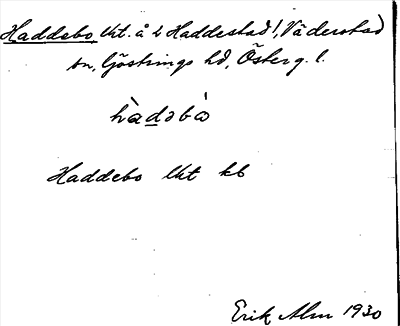 Haddebo lht. å 2 Haddestad /, Väderstad
sn, Göstrings hd, Österg. l.
hàdəbò
Haddebo lht kb
Erik Alm 1930